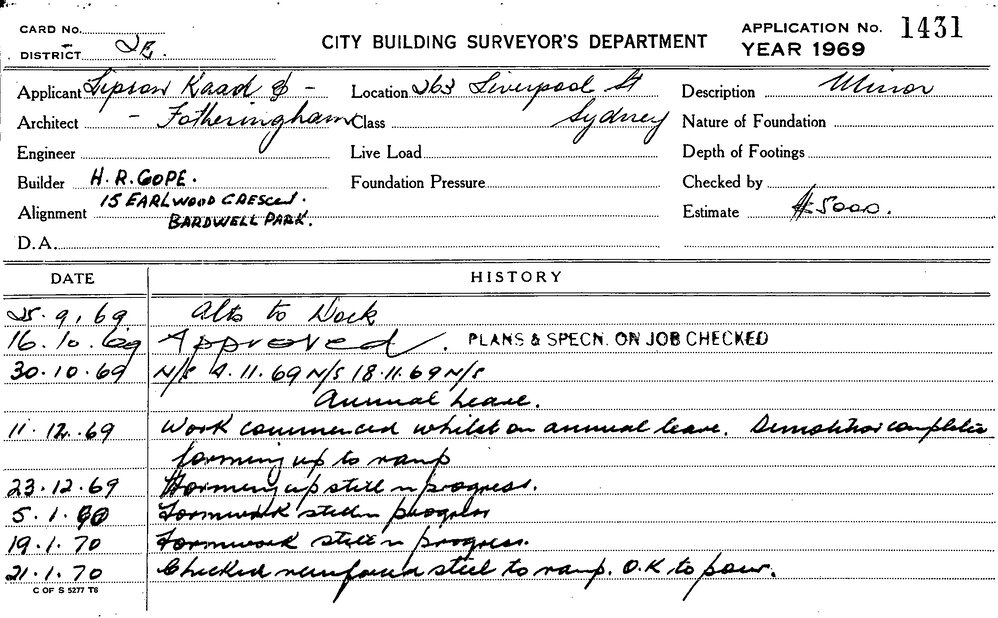 CARD No.
DISTRICT 2E.
CITY BUILDING SURVEYOR'S DEPARTMENT
APPLICATION No. 1431
YEAR 1969
Applicant Lipson Kaad & -
Architect - Fotheringham
Engineer
Builder H.R. GOPE.
Alignment 15 EARLWOOD CRESCENT.
BARDWELL PARK.
D.A.
Location 263 Liverpool St
Class Sydney
Live Load
Foundation Pressure
Description Minor
Nature of Foundation
Depth of Footings
Checked by
Estimate $5000.
DATE HISTORY
25.9.69 Alts to Dock
16.10.69 Approved. PLANS & SPECN. ON JOB CHECKED
30.10.69 N/S 4.11.69 N/S 18.11.69 N/S
Annual Leave.
11.12.69 Work commenced whilst on annual leave. Demolition complete
forming up to ramp
23.12.69 Forming up still in progress.
5.1.70 Formwork still in progress
19.1.70 Formwork still in progress.
21.1.70 Checked reinforced steel to ramp. O.K to pour.
C OF S 5277 T6